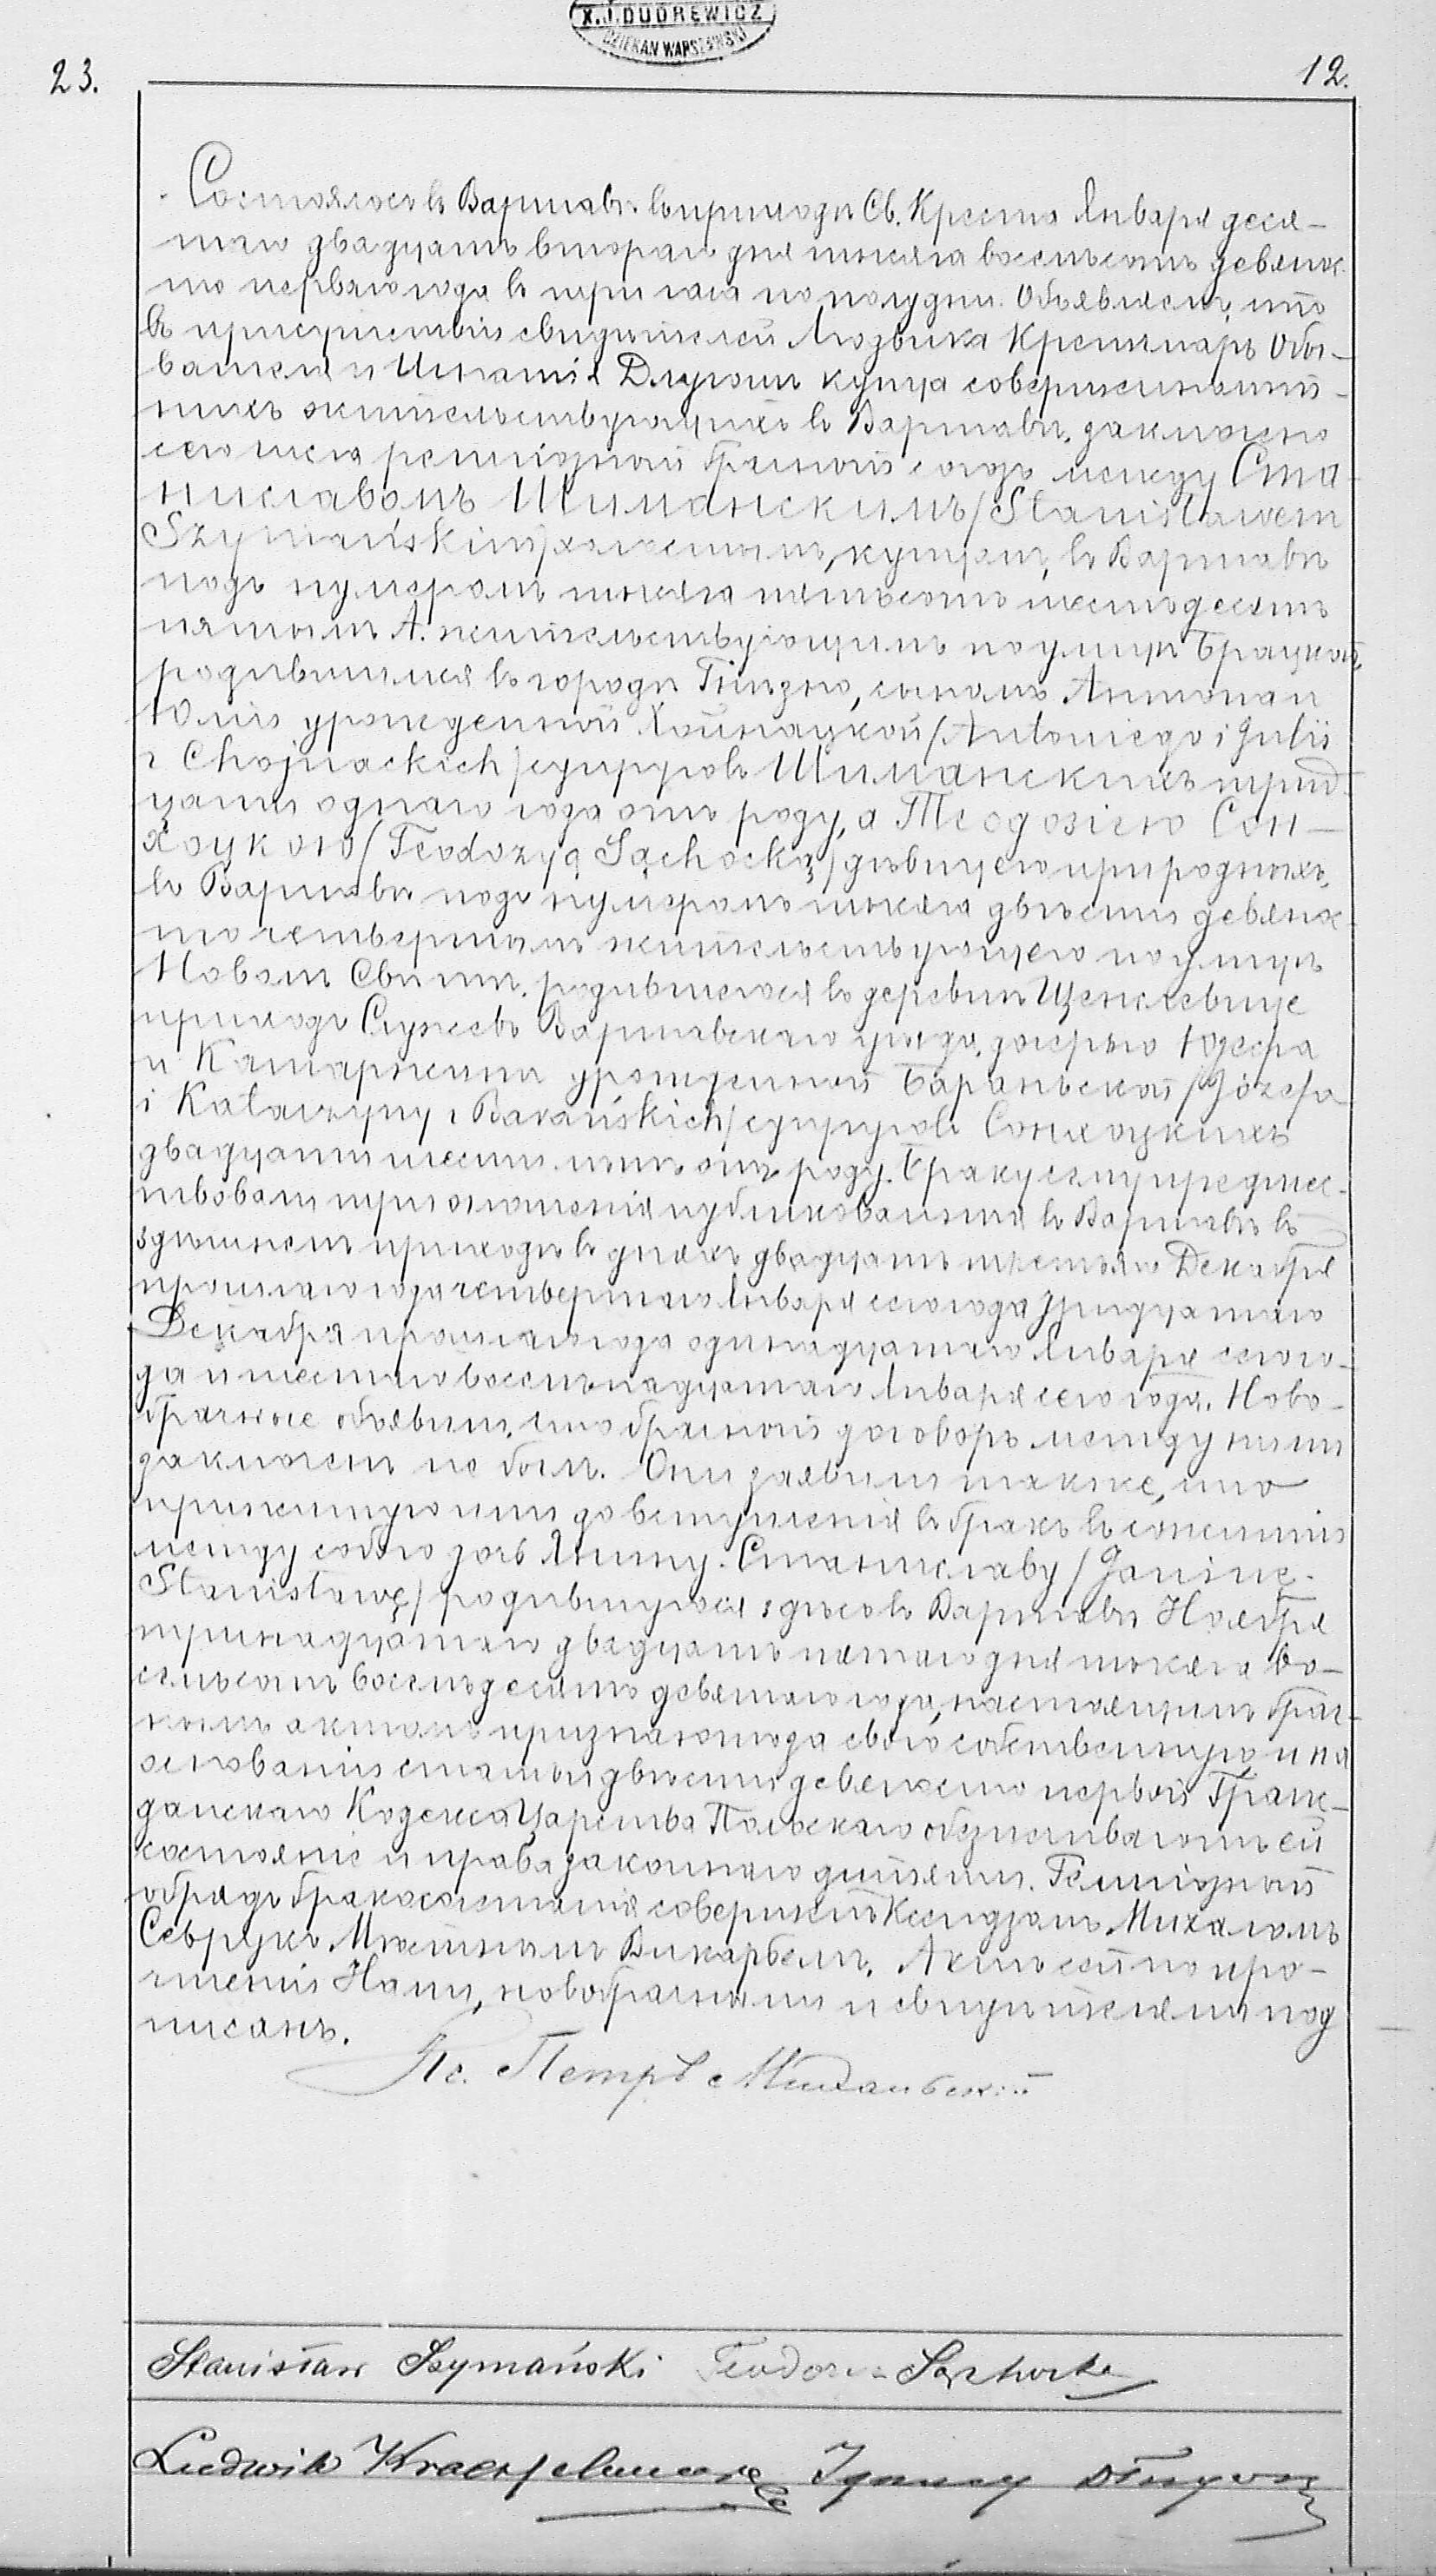 X.J. DUDREWICZ
DZIEKAN WARSZAWSKI
23.
12.
Состоялось въ Варшавѣ въ приходѣ Св. Креста Января деся-
таго двадцать втораго дня тысяча восемьсотъ девянос
то перваго года въ три часа по полудни. Объявляемъ, что
въ присутствіи свидѣтелей Людвика Обы-
вателя и Игнатія Длугошъ купца совершеннолѣт-
нихъ жительствующихъ въ Варшавѣ, заключено
сего числа религіозный брачный союзъ между Ста-
ниславомъ Шиманскимъ /Stanisławem
Szymańskim/ холостымъ, купцемъ, въ Варшавѣ
подъ нумеромъ тысяча пятьсотъ шестьдесятъ
пятымъ А. жительствующимъ по улицѣ Брацкой,
родившимся въ городѣ Гнѣзно, сыномъ Антонаи
Юліи урожденной Хойнацкой /Antoniego i Julii
z Chojnackich/ супруговъ Шиманскихъ трид-
цати однаго года отъ роду, а Теодозіею Сон-
хоцкою /Teodozyą Sąchocką/ дѣвицею при родныхъ,
въ Варшавѣ подъ нумеромъ тысяча двѣсти девянос
то четвертымъ жительствующею по улицѣ
Новомъ Свѣтѣ, родившеюся въ деревнѣ Щенслевице
приходъ Служевъ Варшавскаго уѣзда, дочерью Юзефа
и Катаржины урожденной Бараньской /Józefa
i Katarzyny z Barańskich/ супруговъ Сонхоцкихъ
двадцати шести лѣтъ отъ роду. Браку сему предшес-
твовали три оглашенія публикованныя въ Варшавѣ въ
здѣшнемъ приходѣ въ дняхъ двадцать третьяго Декабря
прошлаго года четвертаго Января сего года, тридцатаго
Декабря прошлаго года одинадцатаго Января сего го-
да и шестаго восемьнадцатаго Января сего года. Ново-
брачные объявили, что брачный договоръ между ними
заключенъ не былъ. Они заявили также, что
прижитую ими до вступленія въ бракъ въ сожитіи
между собою дочь Янину-Станиславу /Janinę-
Stanisławę/ родившуюся здѣсь въ Варшавѣ Ноября
тринадцатаго двадцать пятаго дня тысяча во-
семьсотъ восемьдесятъ девятаго года, настоящимъ брач-
нымъ актомъ признаютъ за свою собственную, и на
основаніи статьи двѣсти девяносто первой Граж-
данскаго Кодекса Царства Польскаго обезпечиваютъ ей
состояніе и права законнаго дитяти. Религіозный
обрядъ бракосочетанія совершенъ Ксендзомъ Михаломъ
Севрукъ Мѣстнымъ Викаріемъ. Актъ сей по про-
чтеніи Нами, новобрачными и свидѣтелями под
писанъ.
Кс. Петръ
Stanisław Szymański Teodozia Sąchocka
Ludwik Ignacy Długosz